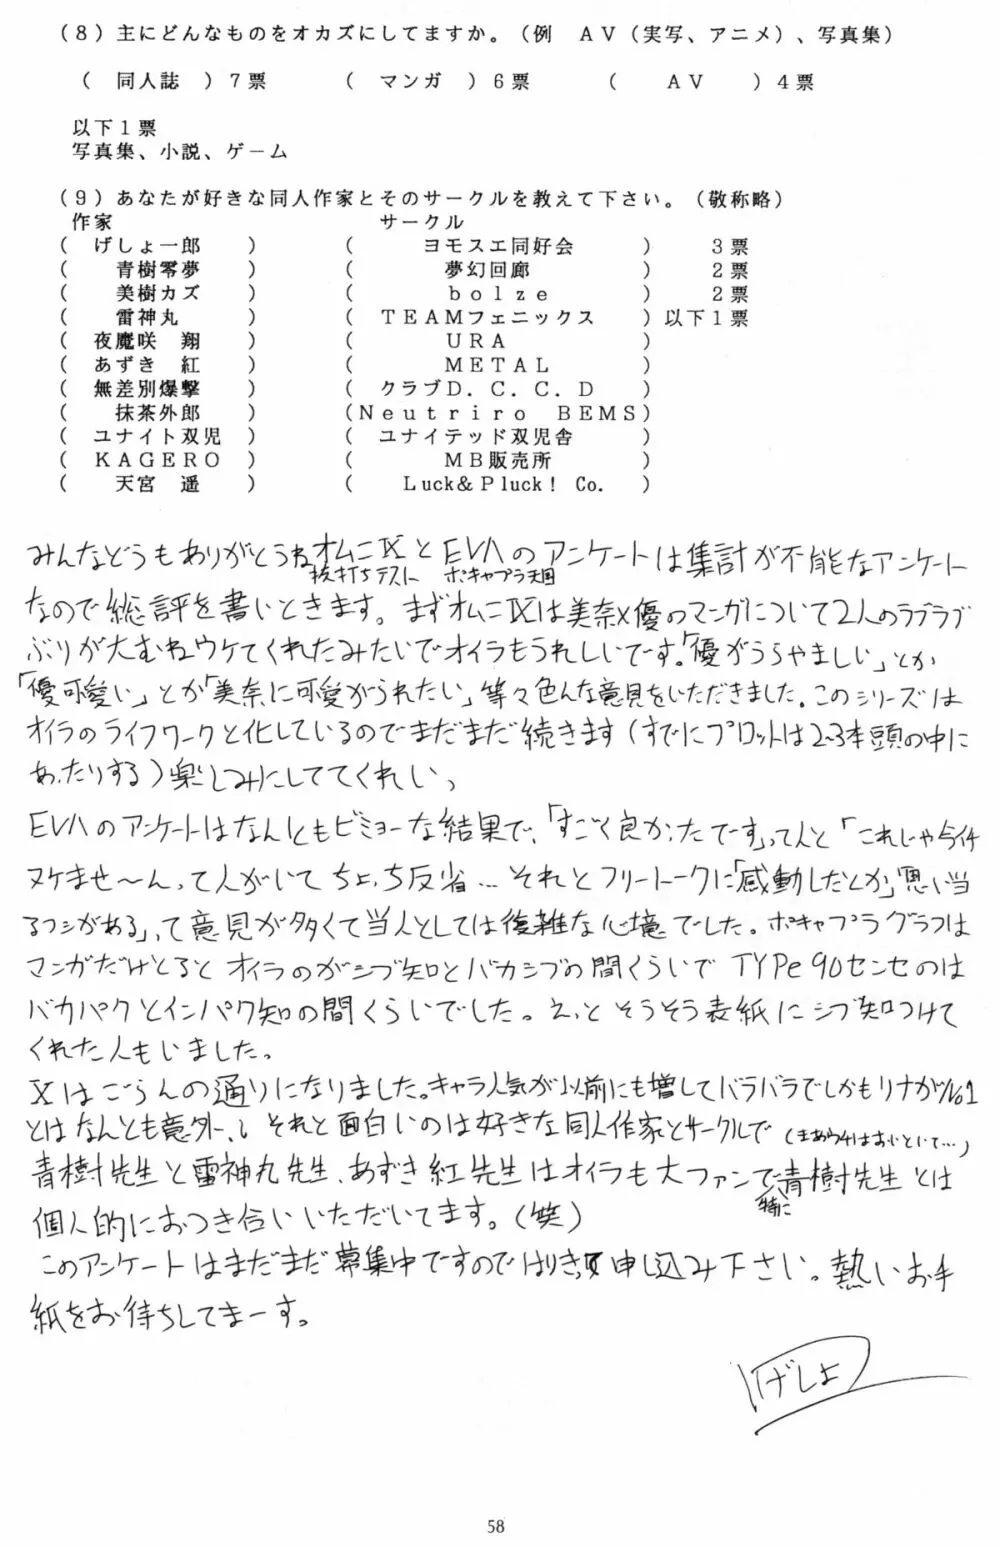 (8)主にどんなものをオカズにしてますか。(例　AV(実写、アニメ)、写真集)
(　同人誌　)7票　(　マンガ　)6票　(　AV　)4票
以下1票
写真集、小説、ゲーム
(9)あなたが好きな同人作家とそのサークルを教えて下さい。(敬称略)
作家　サークル
(　げしょ一郎　)　(　ヨモスエ同好会　)　3票
(　青樹零夢　)　(　夢幻回廊　)　2票
(　美樹カズ　)　(　bolze　)　2票
(　雷神丸　)　(　TEAMフェニックス　)以下1票
(　夜魔咲　翔　)　(　URA　)
(　あずき　紅　)　(　METAL　)
(　無差別爆撃　)　(　クラブD.C.C.D　)
(　抹茶外郎　)　(Neutriro　BEMS)
(　ユナイト双児　)　(　ユナイテッド双児舎　)
(　KAGERO　)　(　MB販売所　)
(　天宮　遥　)　(　Luck&Pluck! Co.　)
みんなどうもありがとうねオムニⅨとEVAのアンケートは集計が不能なアンケート
抜打ちテスト　ボキャプラ天国
なので総評を書いときます。まずオムニⅨは美奈×優のマンガについて2人のラブラブ
ぶりが大むねウケてくれたみたいでオイラもうれしいです。「優がうらやましい」とか
「優可愛い」とか「美奈に可愛がられたい」等々色んな意見をいただきました。このシリーズは
オイラのライフワークと化しているのでまだまだ続きます(すでにプロットは2~3本頭の中に
あったりする)楽しみにしててくれいっ
EVAのアンケートはなんともビミョーな結果で、「すごく良かったです」って人と「これじゃ今イチ
ヌケませ〜んって人がいてちょっち反省…それとフリートークに「感動しただとか」「思い当
るフシがある」って意見が多くて当人としては複雑な心境でした。ボキャプラグラフは
マンガだけとるとオイラのがシブ知とバカシブの間くらいでTYPe90センセのは
バカパクとインパク知の間くらいでした。えっとそうそう表紙にシブ知つけて
くれた人もいました。
Ⅹはごらんの通りになりました。キャラ人気が以前にも増してバラバラでしかもリナがNo1
とはなんとも意外、、それと面白いのは好きな同人作家とサークルで(まあウチはおいといて…)
青樹先生と雷神丸先生、あずき紅先生はオイラも大ファンで青樹先生とは
特に
個人的におつき合いいただいてます。(笑)
このアンケートはまだまだ募集中ですのではりきって申し込み下さい。熱いお手
紙をお待ちしてまーす。
げしょ
58